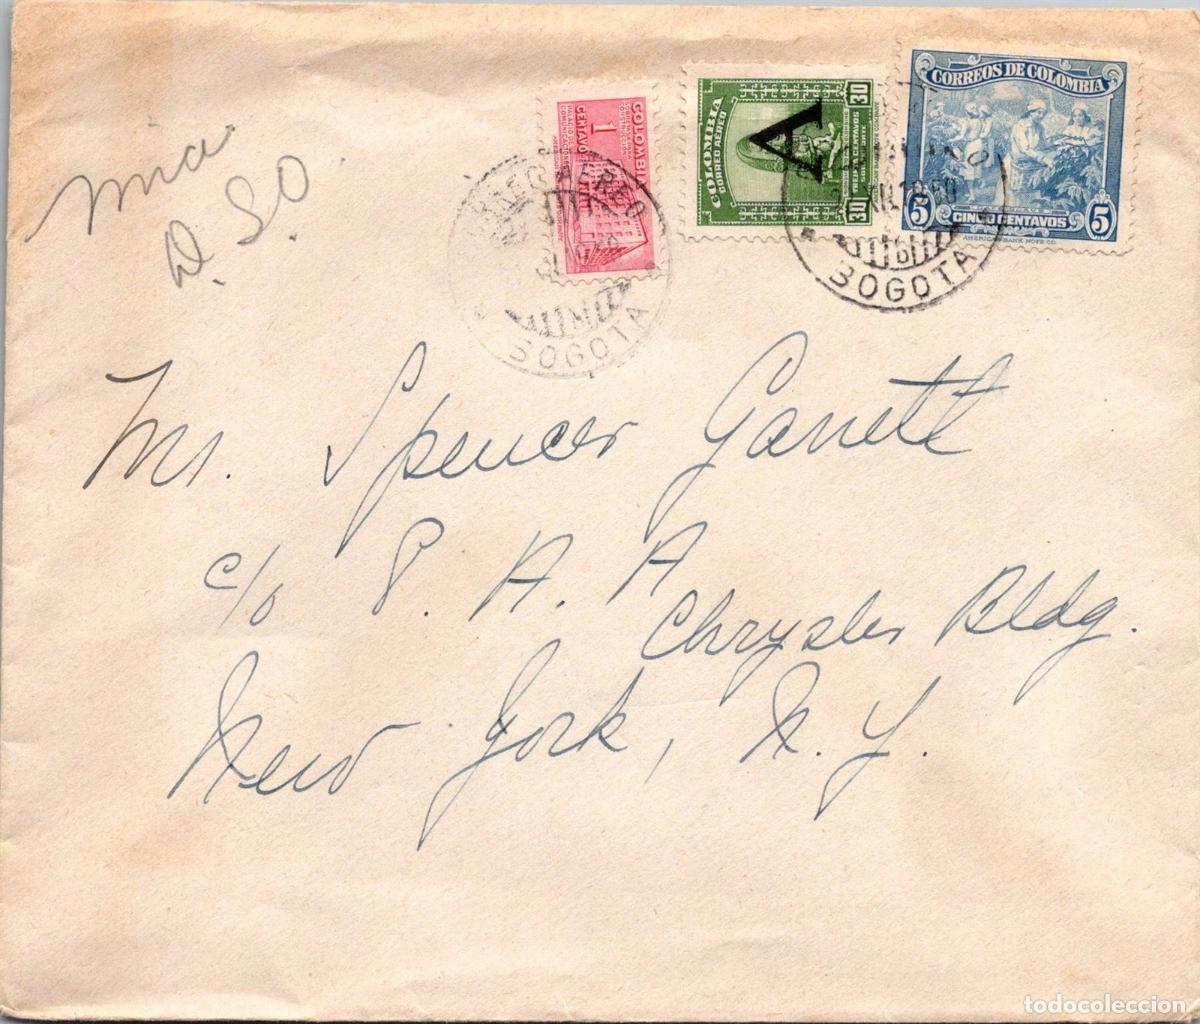 CORREOS DE COLOMBIA
5 CINCO CENTAVOS 5
AMERICAN BANK NOTE CO.
COLOMBIA
CORREO AEREO
30 TREINTA CENTAVOS 30
A
COLOMBIA
1
CENTAVO
CORREO AEREO
BOGOTA
XII 1950
BOGOTA
D. SO
Mr. Spencer Garrett
c/o P. A. A
Chrysler Bldg.
New York, N. Y.
todocoleccion